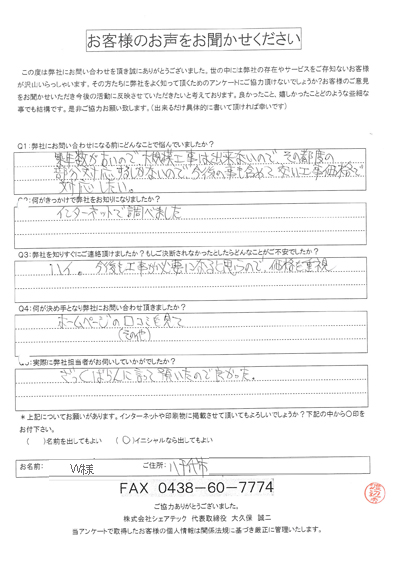 お客様のお声をお聞かせください
この度は弊社にお問い合わせを頂き誠にありがとうございました。世の中には弊社の存在やサービスをご存知ないお客様
が沢山いらっしゃいます。その方たちに弊社をよく知って頂くためのアンケートにご協力頂けないでしょうか？お客様のご意見
をお聞かせいただき今後の活動に反映させていただきたいと考えております。良かったこと、嬉しかったことどのような些細な
事でも結構です。是非ご協力お願い致します。（出来るだけ具体的に書いて頂ければ幸いです）
Q1：弊社にお問い合わせになる前にどんなことで悩んでいましたか？
築年数が古いので、大規模工事は出来ないので、その都度の
部分対応するしかないので、今後の事も含めて安い工事価格で
対応したい。
Q2：何がきっかけで弊社をお知りになりましたか？
インターネットで調べました
Q3：弊社を知りすぐにご連絡頂けましたか？もしご決断されなかったとしたらどんなことがご不安でしたか？
ハイ。今後も工事が必要になると思うので、価格を重視
Q4：何が決め手となり弊社にお問い合わせ頂きましたか？
ホームページの口コミを見て
(その他)
Q5：実際に弊社担当者がお伺いしていかがでしたか？
ざっくばらんに言って頂いたので良かった。
＊上記についてお願いがあります。インターネットや印刷物に掲載させて頂いてもよろしいでしょうか？下記の中から○印を
お付下さい。
（　）名前を出してもよい　（○）イニシャルなら出してもよい
お名前： W様 ご住所： 八千代市
FAX 0438-60-7774
ご協力ありがとうございました。
株式会社シェアテック 代表取締役 大久保 誠二
当アンケートで取得したお客様の個人情報は関係法規に基づき厳正に管理いたします。